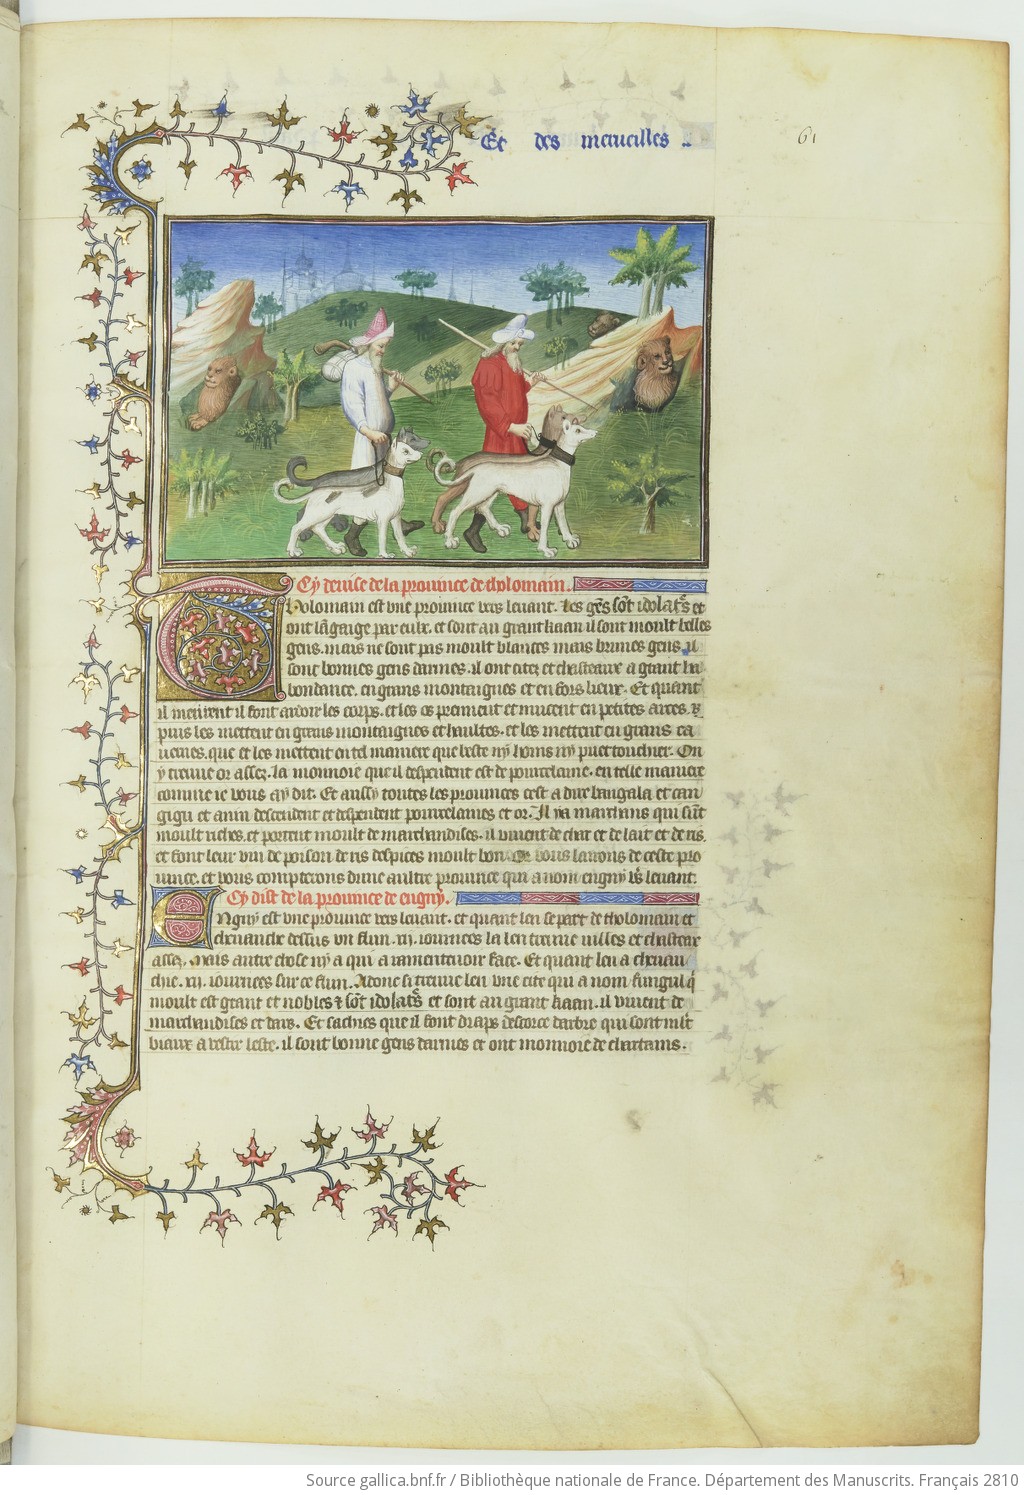 Et des merueilles
61
Cy deuise de la prouince de tholomain.
Tholomain est vne prouince vers leuant. Les gẽs sõt idolatr̃s et
ont lãgaige par eulx. et sont au grant kaan il sont moult belles
gens. mais ne sont pas moult blances mais brunes gens. il
sont bonnes gens darmes. il ont citez et chasteaux a grant ha
bondance. en grans montaignes et en fors lieux. Et quant
il meurent il font ardoir les corps. et les os prennent et mucent en petites arces. et
puis les mettent en grans montaignes et haultes. et les mettent en grans ca
uernes. que et les mettent en tel maniere que beste ny homs ny puet touchier. On
y treuue or assez. la monnoie que il despendent est de pourcelaine. en telle maniere
comme ie vous ay dit. Et aussy toutes les prouinces cest a dire bangala et can
gigu et anin despendent et despendent pourcelaines et or. Il ya marchans qui sũt
moult riches. et portent moult de marchandises. il viuent de char et de lait et de ris.
et font leur vin de poison de ris despices moult bon. Or vous lairons de ceste pro
uince. et vous compterons dune aultre prouince qui a nom cuguy vs̃ leuant.
Cy dist de la prouince de cuguy.
Cuguy est vne prouince vers leuant. et quant len se part de tholomain et
cheuauche dessus vn flun. xij. iournees la len treuue villes et chasteax
assez. mais autre chose ny a qui a ramenteuoir face. Et quant len a cheuau
chie. xij. iournees sur ce flun. Adonc si treuue len vne cite qui a nom fungul q̃
moult est grant et nobles et sõt idolatr̃s et sont au grant kaan. il viuent de
marchandises et dars. Et sachies que il font draps descorce darbre qui sont mlt̃
biaux a vestir leste. il sont bonne gens darmes et ont monnoie de chartains.
Source gallica.bnf.fr / Bibliothèque nationale de France. Département des Manuscrits. Français 2810